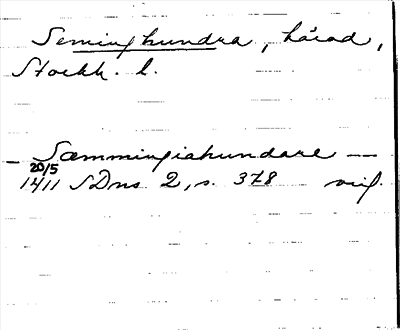 Seminghundra, härad,
Stockh. l.
— Sæmmingiahundare —
20/5
1411 SDns 2, s. 378 vrif.